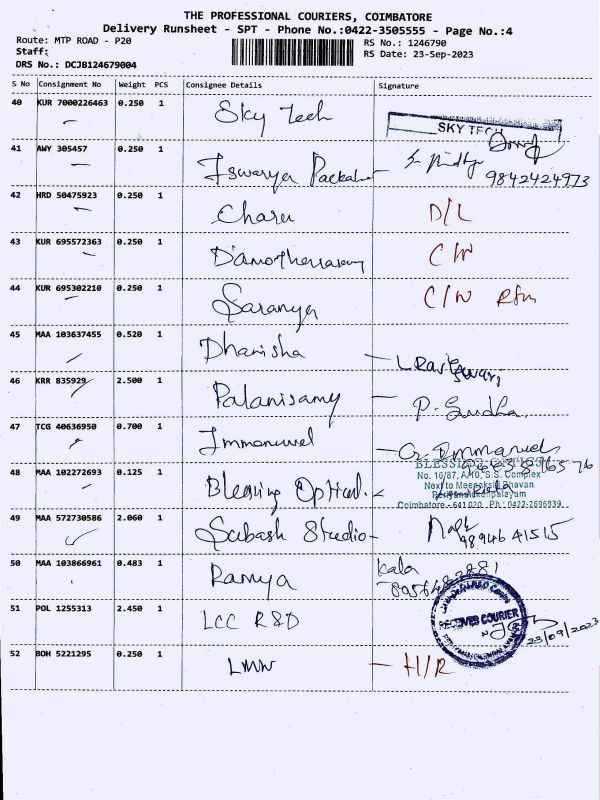 THE PROFESSIONAL COURIERS, COIMBATORE
Delivery Runsheet - SPT - Phone No.:0422-3505555 - Page No.:4
Route: MTP ROAD - P20 RS No.: 1246790
Staff: RS Date: 23-Sep-2023
DRS No.: DCJB124679004
S No Consignment No Weight PCS Consignee Details Signature
40 KUR 7000226463 0.250 1 Sky Tech
SKY TECH
41 AWY 305457 0.250 1 Iswarya
9842424973
42 HRD 50475923 0.250 1 Charu D/L
43 KUR 695572363 0.250 1 C/N
44 KUR 695302210 0.250 1 Saranya C/N
45 MAA 103637455 0.520 1 Dharisha
46 KRR 835929 2.500 1 Palanisamy - P. Sudha
47 TCG 40636950 0.700 1 Immanuvel - Immanuel
48 MAA 102272693 0.125 1 Blessing Optical
No. 16/87, A/10, S.S. Complex
Next to Meenakshi Bhavan
Coimbatore - 641 020. Ph : 0422-2696939
49 MAA 572730586 2.060 1 Subash Studio -
98946 41515
50 MAA 103866961 0.483 1 Ramya Kala
51 POL 1255313 2.450 1 LCC R&D
RECEIVED COURIER
23/09/2023
52 BOH 5221295 0.250 1 LMW - H/R